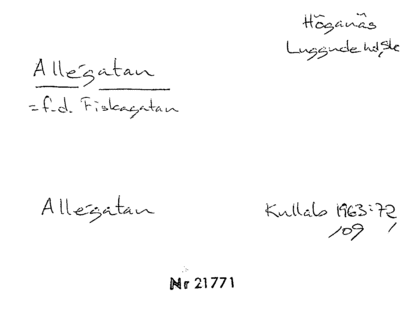 Höganäs
Luggude hd, Sk
Allégatan
= f.d. Fiskagatan
Allégatan
Kullab 1963:72,
109
Nr 21771